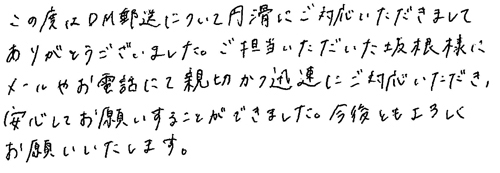 この度はDM郵送について円滑にご対応いただきまして
ありがとうございました。ご担当いただいた坂根様に
メールやお電話にて親切かつ迅速にご対応いただき、
安心してお願いすることができました。今後ともよろしく
お願いいたします。